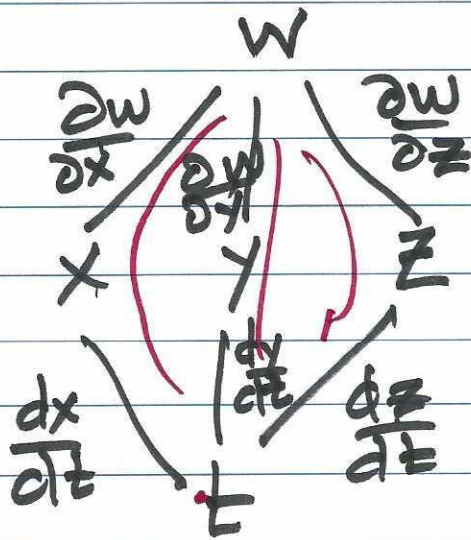 W
∂w/∂x ∂w/∂y ∂w/∂z
X Y Z
dx/dt dy/dt dz/dt
t